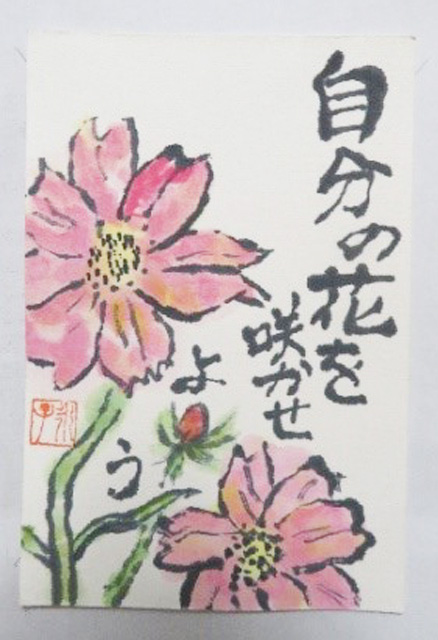 自分の花を
咲かせ
よ
う